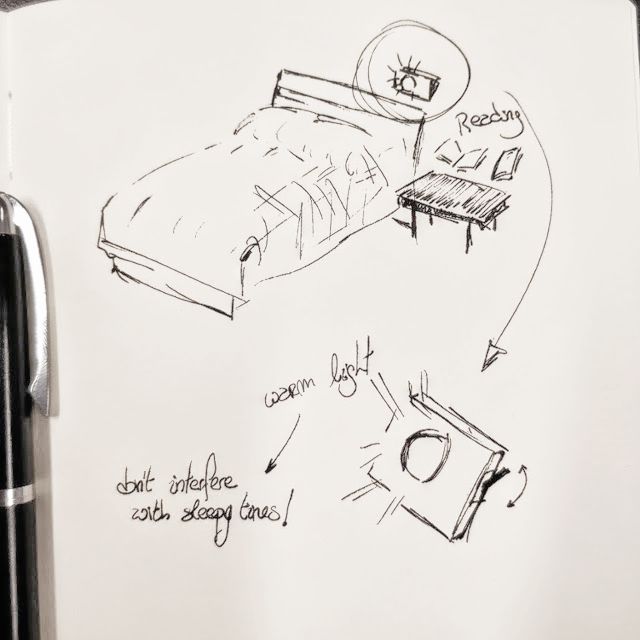 Reading
warm light
don't interfere
with sleepy times!